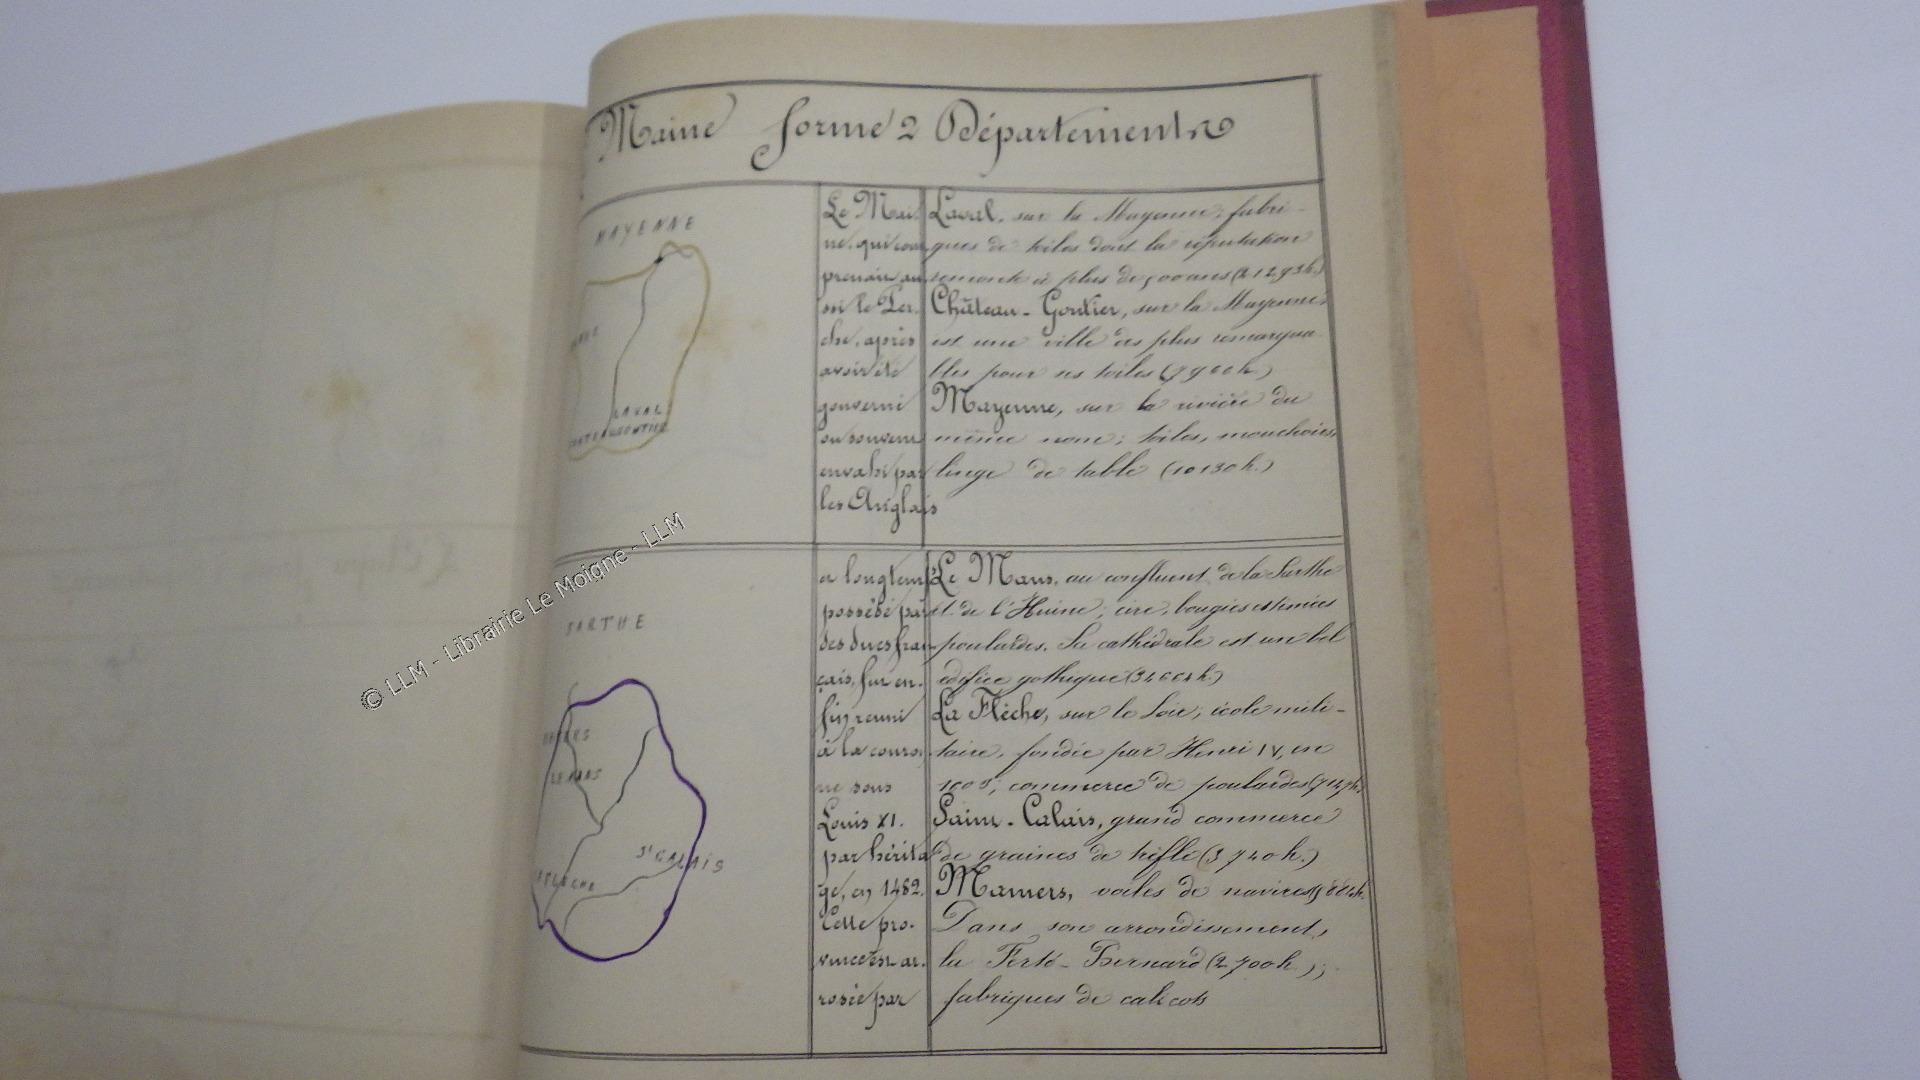 Maine forme 2 Départements
MAYENNE
LAVAL
CHATEAUGONTIER
Le Mai-
ne, qui com
prenait au
si le Per-
che, après
avoir été
gouverné
ou souvent
envahi par
les Anglais
Laval, sur la Mayenne; fabri-
ques de toiles dont la réputation
remonte à plus de 500 ans (21293h.)
Château-Gontier, sur la Mayenne,
est une ville des plus remarqua-
bles pour ses toiles (7900h.)
Mayenne, sur la rivière du
même nom; toiles, mouchoirs,
linge de table (10130h.)
SARTHE
MAMERS
LE MANS
St CALAIS
LA FLECHE
a longtemps
possédé par
des ducs fran-
çais, fut en-
fin réuni
à la couron
ne sous
Louis XI.
par hérita
ge, en 1482.
Cette pro-
vince est ar-
rosée par
Le Mans, au confluent de la Sarthe
et de l'Huine; cire, bougies estimées
poulardes. Sa cathédrale est un bel
édifice gothique
La Flèche, sur le Loir; école mili-
taire, fondée par Henri IV, en
commerce de poulardes
Saint-Calais, grand commerce
de graines de trèfle (3740h.)
Mamers, voiles de navires
Dans son arrondissement,
la Ferté-Bernard (2700h.);
fabriques de calicots
© LLM - Librairie Le Moigne - LLM